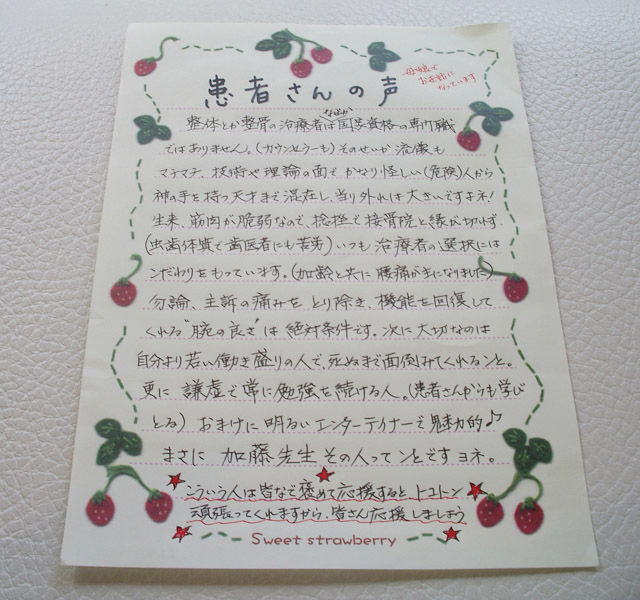 患者さんの声
母娘で
お世話に
なっています
なぜか
整体とか整骨の治療者は国家資格の専門職
ではありません。(カウンセラーも)そのせいか流儀も
マチマチ、技術や理論の面で、かなり怪しい(危険)人から
神の手を持つ天才まで混在し、当り外れは大きいですよネ!
生来、筋肉が脆弱なので、捻挫で接骨院と縁が切れず、
(虫歯体質で歯医者にも苦労)いつも治療者の選択には
こだわりをもっています。(加齢と共に腰痛が主になりました)
勿論、主訴の痛みをとり除き、機能を回復して
くれる"腕の良さ"は絶対条件です。次に大切なのは
自分より若い働き盛りの人で、死ぬまで面倒みてくれること。
更に謙虚で常に勉強を続ける人。(患者さんからも学び
とる)おまけに明るいエンターテイナーで魅力的♪
まさに加藤先生その人ってことですヨネ。
こういう人は皆なで褒めて応援すると、トコトン
頑張ってくれますから、皆さん応援しましょう
Sweet strawberry